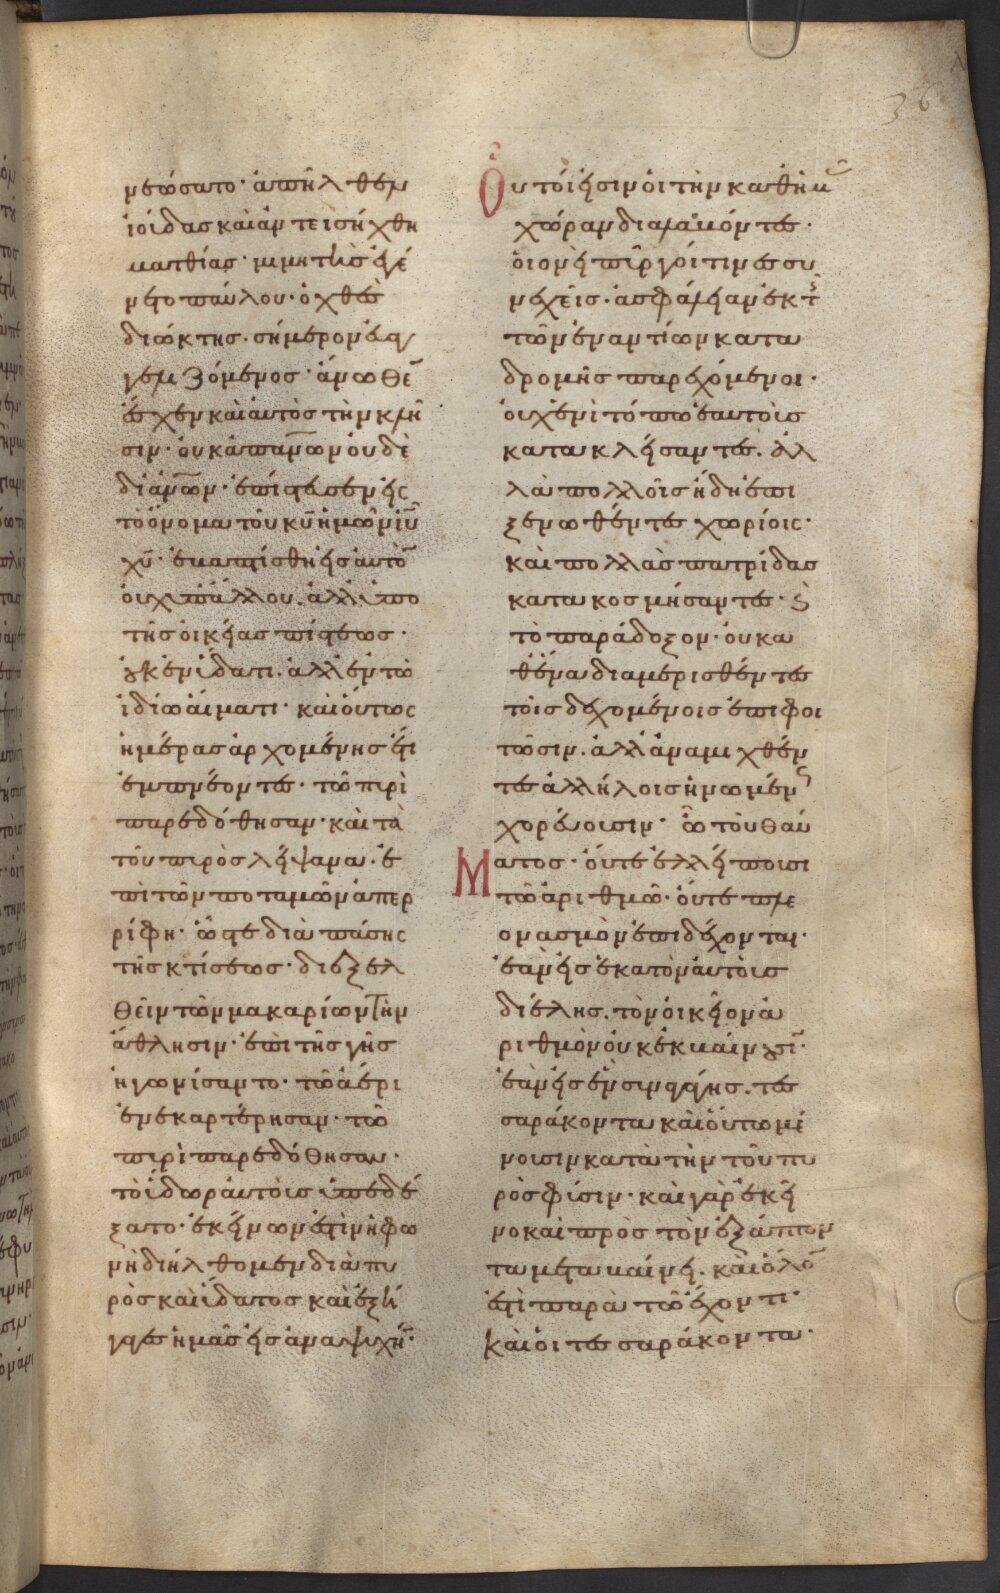 36
νεώσατο· ἀπῆλθεν
ἰοίδας καὶ ἀντεισήχθη
ματθίας· μιμητὴς ἐγέ
νετο παύλου· ὁ χθὲς
διώκτης· σήμερον εὐα
γελιζόμενος· ἄνωθε͂
ἔσχεν καὶ αὐτὸς τὴν κλῆ
σιν· οὐκ ἀπ ἀν͞ων οὐδὲ
δι ἀν͞ων· ἐπίστευσεν εἰς
τὸ ὄνομα τοῦ κ͞υ ἡμῶν ἰ͞υ
χ͞υ· ἐβαπτίσθη εἰς αὐτὸ͂
οὐχ ὑπ ἄλλου· ἀλλ ὑπο
τῆς οἰκείας πίστεως·
οὐκ ἐν ὕδατι· ἀλλ ἐν τῶ
ἰδίω αἵματι· καὶ οὕτως
ἡμέρας ἀρχομένης ἔτι
ἐμπνέοντες· τῶ πυρὶ
παρεδόθησαν· καὶ τὰ
τοῦ πυρὸς λείψανα· ἐ
πὶ τῶν ποταμῶν ἀπερ
ρίφη· ὥστε διὰ πάσης
τῆς κτίσεως· διεξελ
θεῖν τῶν μακαρίων τὴν
ἄθλησιν· ἐπὶ τῆς γῆς
ἠγωνίσαντο· τῶ ἀέρι
ἐνεκαρτέρησαν· τῶ
πυρὶ παρεδόθησαν·
τὸ ὕδωρ αὐτοὺς ὑπεδέ
ξατο· ἐκείνων ἐστὶν ἡ φω
νὴ διήλθομεν διὰ πυ
ρὸς καὶ ὕδατος καὶ ἐξή
γαγες ἡμᾶς εἰς ἀναψυχή͂·
Οὗτοι εἰσιν οἱ τὴν καθ ἡμᾶς
χώραν διαλαβόντες·
οἱονεὶ πύργοί τινες συ
νεχεῖς· ἀσφάλειαν ἐκ τῆς
τῶν ἐναντίων κατα
δρομῆς παρεχόμενοι·
οὐχ ἑνὶ τόπω ἑαυτοὺς
κατακλείσαντες· ἀλ
λὰ πολλοῖς ἤδη ἐπι
ξενωθέντες χωρίοις·
καὶ πολλὰς πατρίδας
κατακοσμήσαντες· καὶ
τὸ παράδοξον· οὐ κα
θ ἕνα διαμερισθέντες
τοῖς δεχομένοις ἐπιφοι
τῶσιν· ἀλλ ἀναμιχθέν
τες ἀλλήλοις ἡνωμένως
χορεύουσιν· ὦ τοῦ θαύ
Ματος· οὔτε ἐλλείπουσι
τῶ ἀριθμῶ· οὔτε πλε
ονασμὸν ἐπιδέχονται·
ἐὰν εἰς ἑκατὸν αὐτοὺς
διέλης· τὸν οἰκεῖον ἀ
ριθμὸν οὐκ ἐκβαίνουσῖ·
ἐὰν εἰς ἓν συναγάγης· τεσ
σαράκοντα καὶ οὕτω μέ
νουσιν κατὰ τὴν τοῦ πυ
ρὸς φύσιν· καὶ γὰρ ἐκεῖ
νο καὶ πρὸς τὸν ἐξάπτον
τα μεταβαίνει· καὶ ὅλο͂
ἐστὶ παρὰ τῶ ἔχοντι·
καὶ οἱ τεσσαράκοντα·